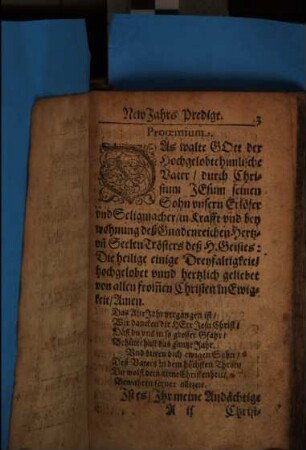 New Jahrs Predigt. 3
Proœmium.
DAs walte GOtt der
Hochgelobte himlische
Vater / durch Chri-
stum JEsum seinen
Sohn unsern Erlöser
vnd Seligmacher / in Krafft vnd bey
wohnung deß Gnadenreichen Hertz-
vñ Seelen Trösters deß H. Geistes:
Die heilige einige Dreyfaltigkeit /
hochgelobet vnnd hertzlich geliebet
von allen from̃en Christen in Ewig-
keit / Amen.
Das Alte Jahr vergangen ist /
Wir dancken dir HErr Jesu Christ /
Daß du uns in so grosser Gfahr /
Behütet hast diß gantze Jahr.
Wir bitten dich ewigen Sohn /
Deß Vaters in dem höchsten Thron /
Du wolst dein arme Christenheit /
Bewahren ferner allezeit.
Ist es / Ihr meine Andächtige
A ij Christ-